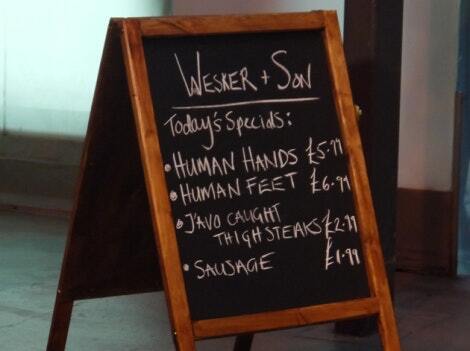 WESKER + SON
Today's Specials:
• HUMAN HANDS £5.99
• HUMAN FEET £6.99
• J'AVO CAUGHT
THIGH STEAKS £2.99
• SAUSAGE £1.99